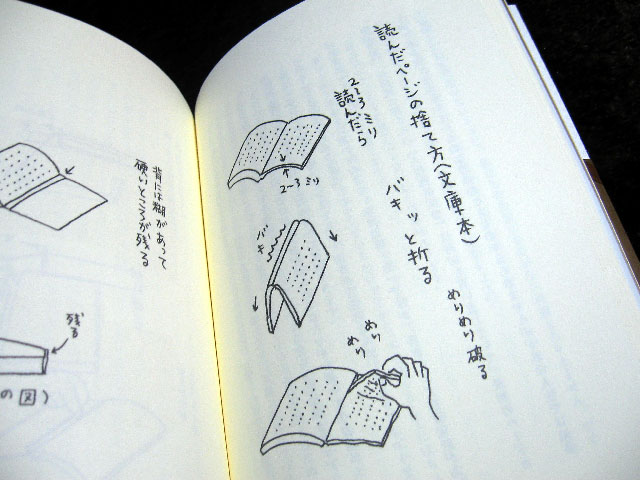 読んだページの捨て方(文庫本)
2~3ミリ
読んだら
2~3ミリ
バキッと折る
バキ
めりめり破る
めり
めり
背には糊があって
硬いところが残る
残る
の図)